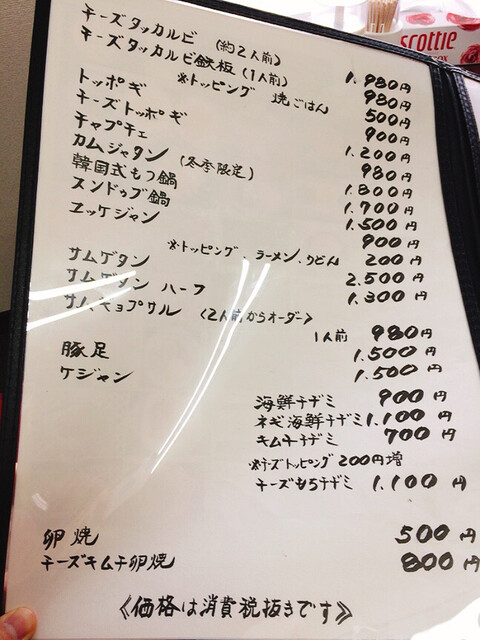 scottie
チーズタッカルビ (約2人前) 1.980円
チーズタッカルビ鉄板(1人前) 980円
※トッピング 焼ごはん 500円
トッポギ 900円
チーズトッポギ 1.200円
チャプチェ 980円
カムジャタン (冬季限定) 1.800円
韓国式もつ鍋 1.700円
スンドゥブ鍋 1.500円
ユッケジャン 900円
※トッピング、ラーメン、うどん 200円
サムゲタン 2.500円
サムゲタン ハーフ 1.300円
サムギョプサル (2人前からオーダー)
1人前 980円
豚足 1.500円
ケジャン 1.500円
海鮮チヂミ 900円
ネギ海鮮チヂミ 1.100円
キムチチヂミ 700円
※チーズトッピング200円増
チーズもちチヂミ 1.100円
卵焼 500円
チーズキムチ卵焼 800円
《価格は消費税抜きです》